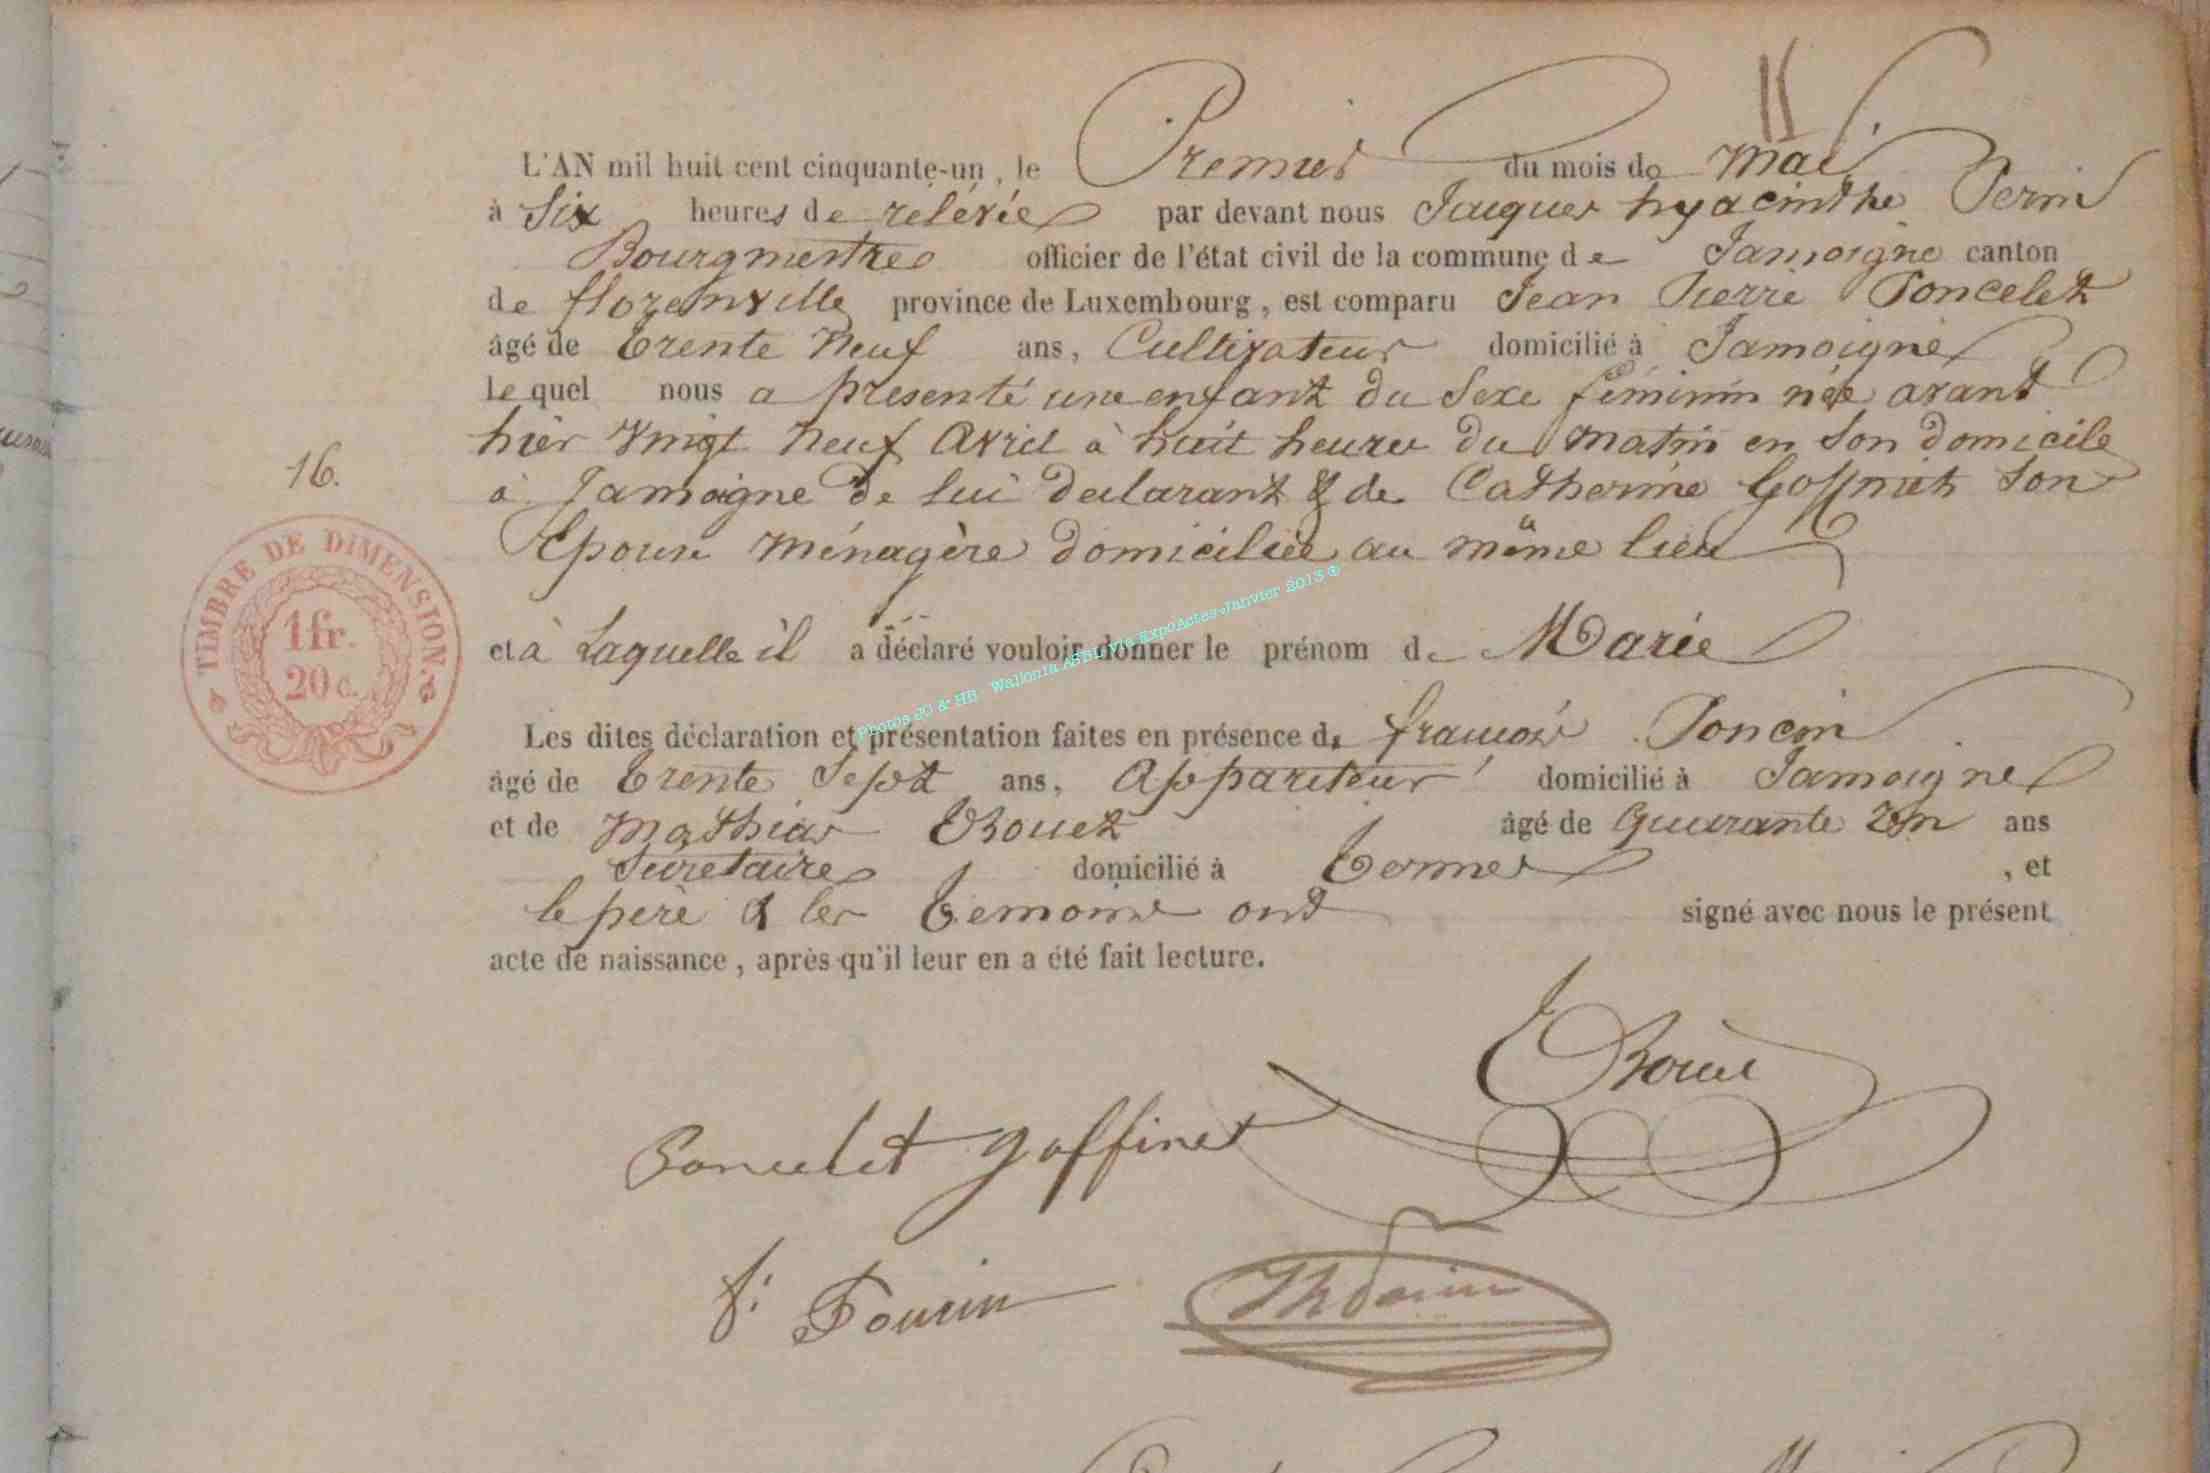 L'AN mil huit cent cinquante-un, le Premier du mois de Mai
à Six heures de rélévée par devant nous Jacques hyacinthe Perin
Bourgmestre officier de l'état civil de la commune de Jamoigne canton
de florenville province de Luxembourg, est comparu Jean Pierre Poncelet
âgé de trente Neuf ans, Cultivateur domicilié à Jamoigne
Lequel nous a présenté une enfant du Sexe féminin née avant
hier vingt Neuf Avril à huit heures du matin en Son domicile
à Jamoigne de lui déclarant & de Catherine Goffinet Son
Epouse Ménagère domiciliée au même lieu
et à Laquelle il a déclaré vouloir donner le prénom de Marie
16.
TIMBRE DE DIMENSION.
1 fr.
20 c.
Photos JC & HB - Wallonia ASBL via ExpoActes-Janvier 2013 ®
Les dites déclaration et présentation faites en présence de françois Poncin
âgé de trente Sept ans, Appariteur domicilié à Jamoigne
et de Mathias Thouet âgé de Quarante Un ans
Sécretaire domicilié à termes, et
le père & les témoins ont signé avec nous le présent
acte de naissance, après qu'il leur en a été fait lecture.
Poncelet goffinet
f: Poncin